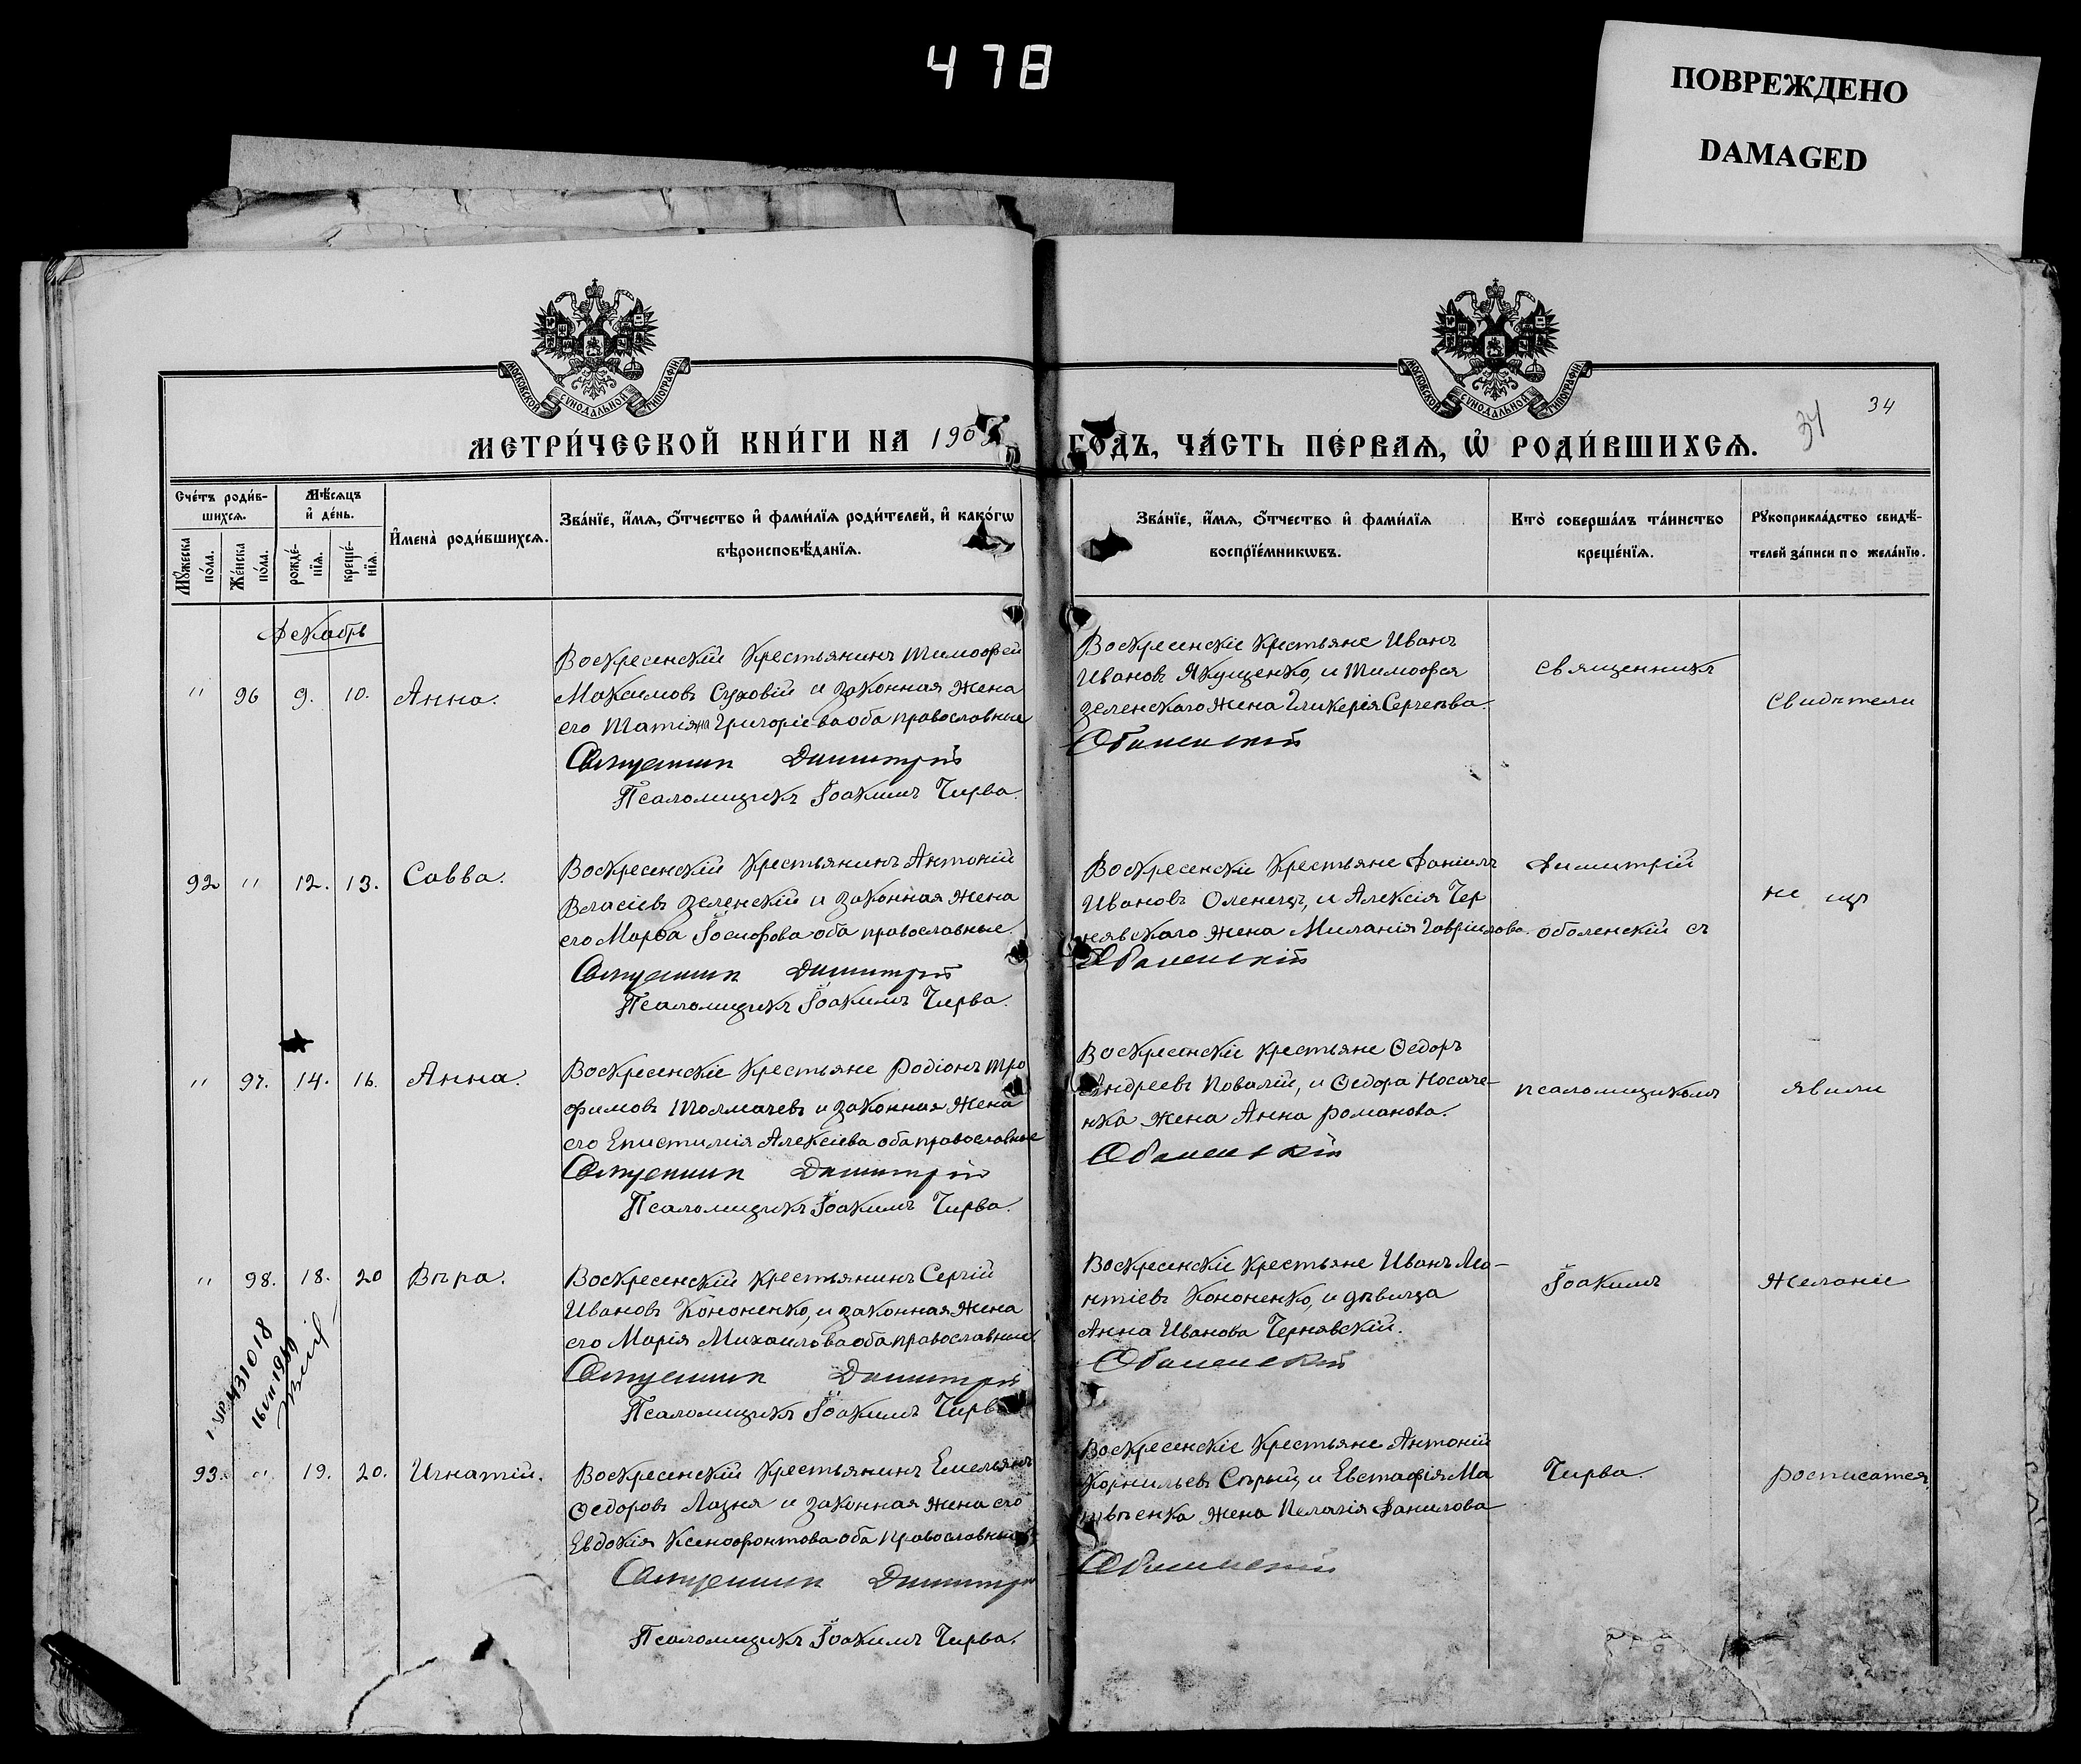 478
ПОВРЕЖДЕНО
DAMAGED
МОСКОВСКОЙ СѴНОДАЛЬНОЙ ТИПОГРАФІИ.
МОСКОВСКОЙ СѴНОДАЛЬНОЙ ТИПОГРАФІИ.
34
34
МЕТРИ́ЧЕСКОЙ КНИ́ГИ НА 190
ГО́ДЪ, ЧА́СТЬ ПЕ́РВАѦ, Ѡ҆ РОДИ́ВШИХСѦ.
Сче́тъ роди́в-
шихсѧ.
Мѣ́сѧцъ
и҆ де́нь.
Мꙋ́жеска
по́ла.
Же́нска
по́ла.
рожде́-
нїѧ.
креще́-
нїѧ.
И҆мена̀ роди́вшихсѧ.
Зва́нїе, и҆́мѧ, ѻ҆́тчество и҆ фами́лїѧ роди́телей, и҆ како́гѡ
вѣроисповѣ́данїѧ.
Зва́нїе, и҆́мѧ, ѻ҆́тчество и҆ фами́лїѧ
воспрїе́мникѡвъ.
Кто̀ соверша́лъ та́инство
креще́нїѧ.
Рꙋкоприкла́дство свидѣ́-
телей за́писи по жела́нїю.
Декабрь
" 96 9. 10. Анна.
Воскресенскій крестьянинъ Тимоѳей
Максимовъ Суховій и законная жена
его Татіяна Григоріева оба православные
Священник Димитрій
Псаломщикъ Іоакимъ Чирва.
Воскресенскіе крестьяне Иванъ
Ивановъ Якущенко, и Тимоѳея
Зеленскаго жена Гликерія Сергѣева.
Оболенскій
Священникъ
Свидѣтели
92 " 12. 13. Савва.
Воскресенскій крестьянинъ Антоній
Власіевъ Зеленскій и законная жена
его Марѳа Іосифова оба православные.
Священник Димитрій
Псаломщикъ Іоакимъ Чирва.
Воскресенскіе крестьяне Даніилъ
Ивановъ Оленецъ, и Алексія Чер
нявскаго жена Миланія Гавріилова.
Оболенскій
Димитрій
Оболенскій съ
не изъ
" 97. 14. 16. Анна.
Воскресенскіе крестьяне Родіонъ Тро
фимовъ Толмачевъ и законная жена
его Епистимія Алексіева оба православные
Священник Димитрій
Псаломщикъ Іоакимъ Чирва.
Воскресенскіе крестьяне Ѳедоръ
Андреевъ Повалій, и Ѳедора Носаче-
нка жена Анна Романова.
Оболенскій
псаломщикомъ
явили
" 98. 18. 20 Вѣра.
Воскресенскій крестьянинъ Сергій
Ивановъ Кононенко, и законная жена
его Марія Михаилова оба православные
Священник Димитрій
Псаломщикъ Іоакимъ Чирва
Воскресенскіе крестьяне Иванъ Ле-
нтіевъ Кононенко, и дѣвица
Анна Иванова Чернявскій.
Оболенскій
Іоакимъ
Желаніе
431018
93. " 19. 20. Игнатій.
Воскресенскій крестьянинъ Емельянъ
Ѳедоровъ Лазня и законная жена его
Евдокія Ксенофонтова оба православные
Священник Димитрій
Псаломщикъ Іоакимъ Чирва.
Воскресенскіе крестьяне Антоній
Корнильевъ Сѣрый, и Евстафія Ма
твѣенка жена Пелагія Данилова
Оболенскій
Чирва.
росписатся